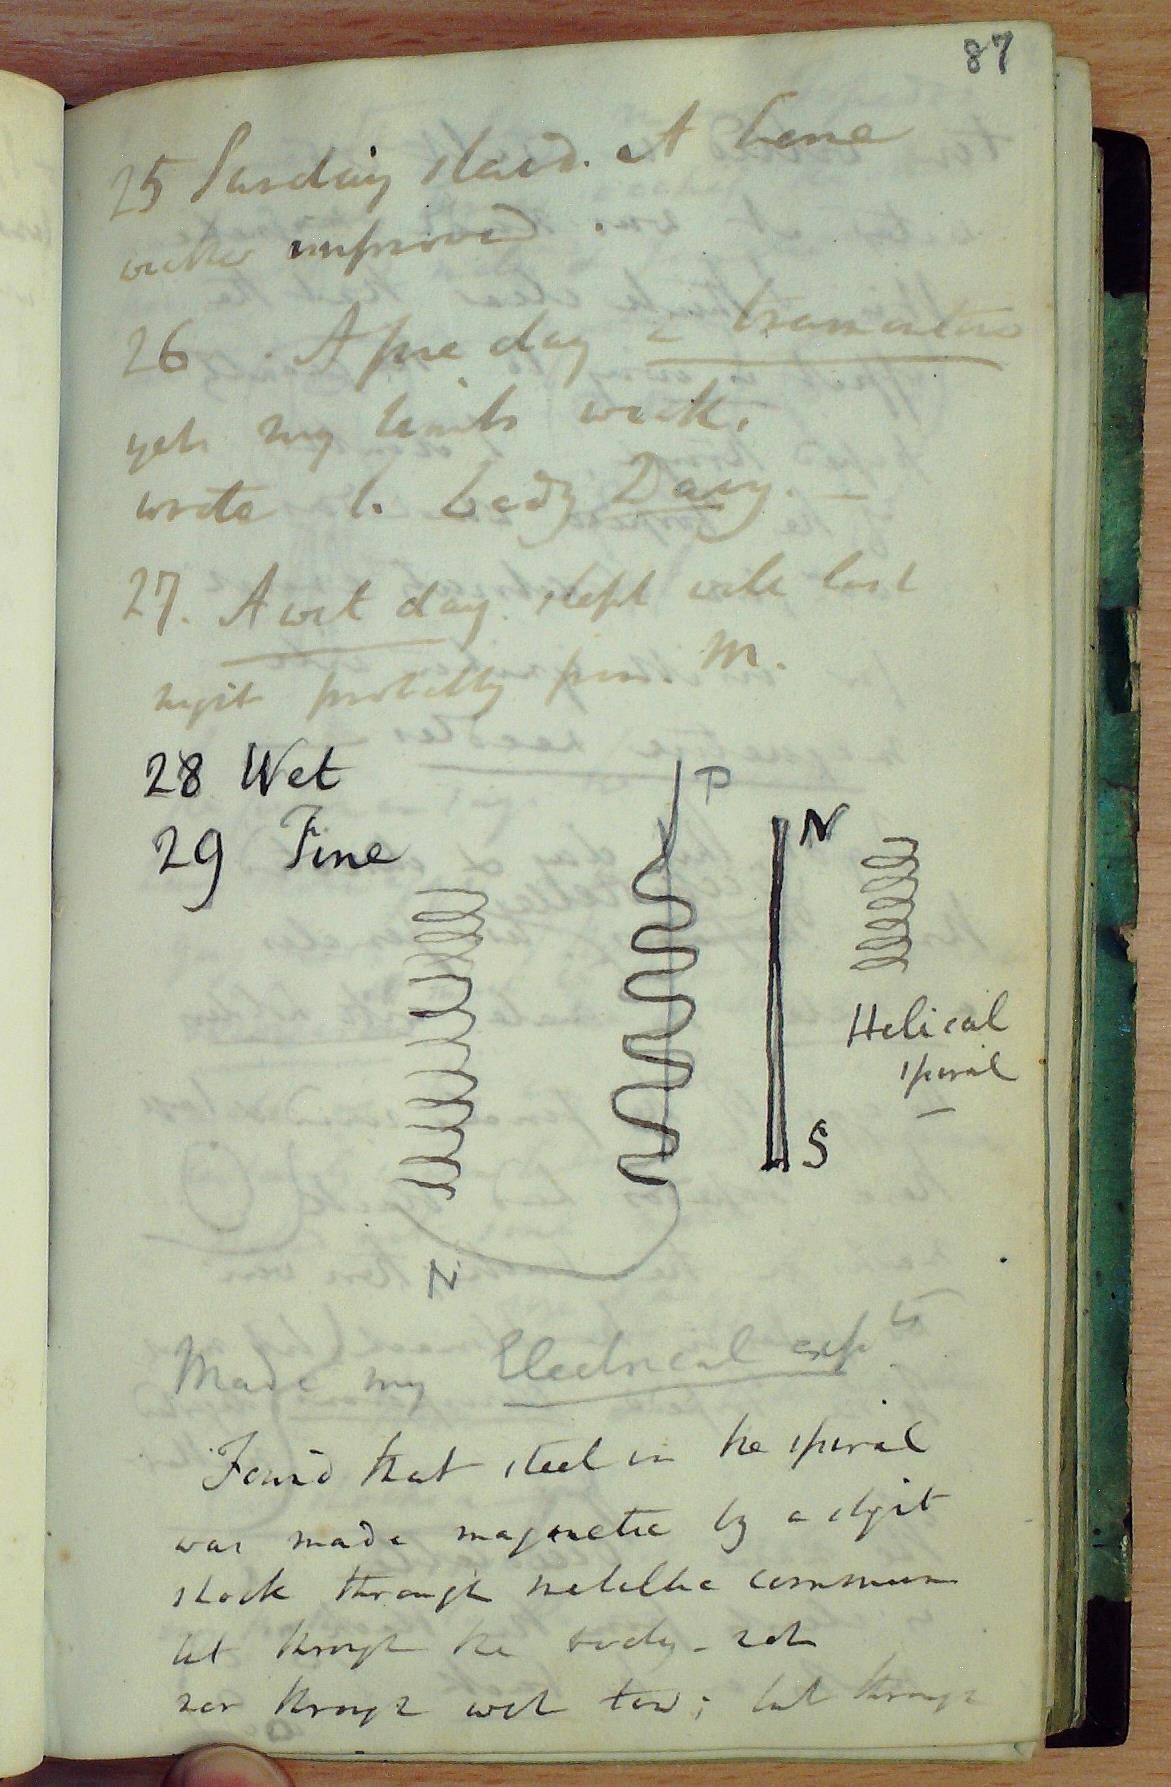 87
25 Sunday staid. At home
rather improved.
26. A fine day
yet my limbs weak.
wrote to Lady Davy. —
27. A wet day. slept well last
night probably from M.
28 Wet
29 Fine
P
N
S
Helical
spiral
—
N
Made my Electrical expts
Found that steel in the spiral
was made magnetic by a slight
shock through metallic commun
but through the body - not
nor through wet tow; but through